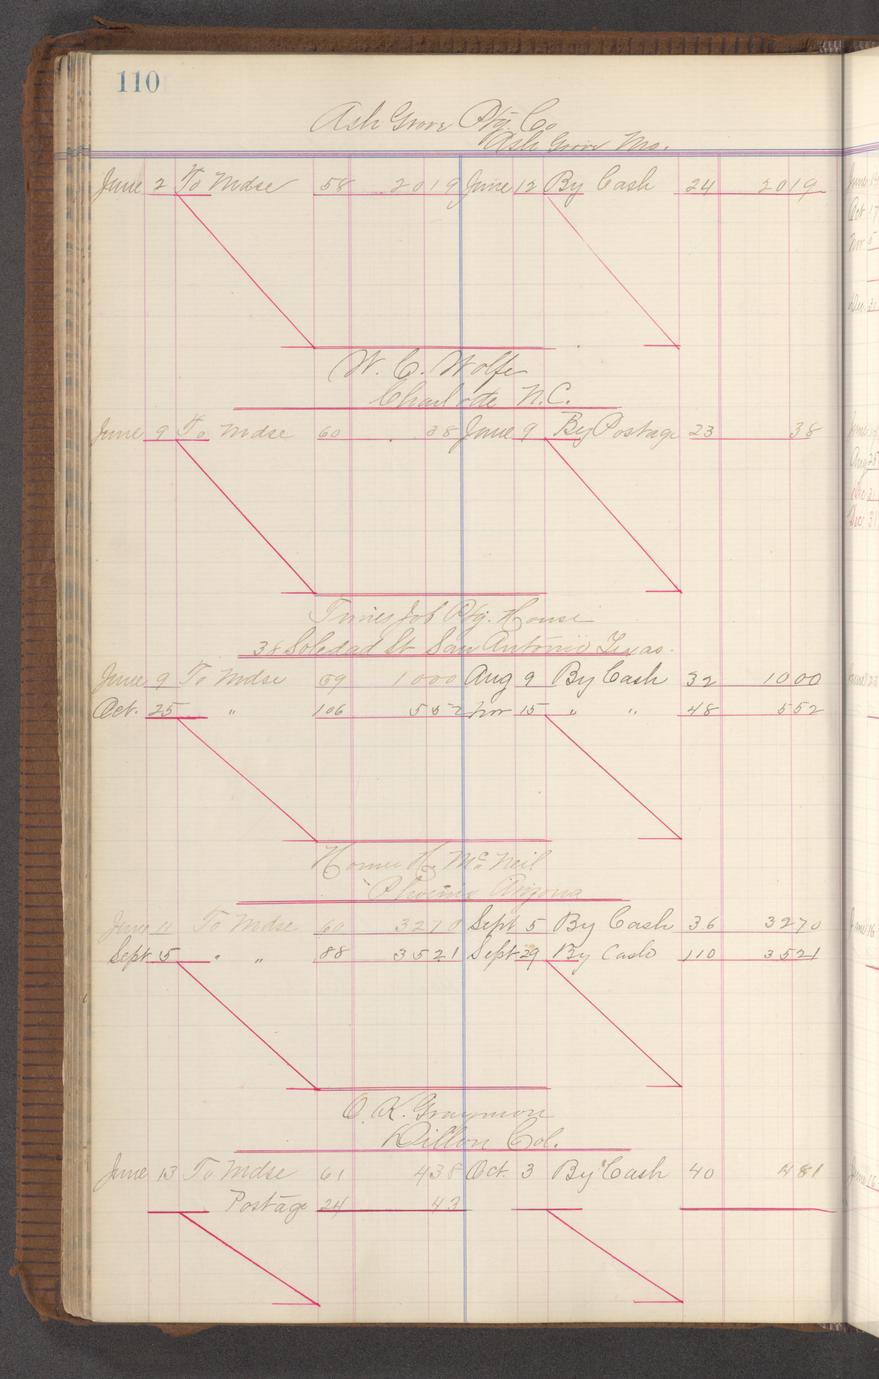 110
Ash Grove Ptg. Co
Ash Grove Mo.
June 2 To Mdse 58 2019 June 12 By Cash 24 2019
W. C. Wolfe
Charlotte N.C.
June 9 To Mdse 60 38 June 9 By Postage 23 38
Times Job Ptg. House
38 Soledad St San Antonio Texas.
June 9 To Mdse 59 1000 Aug 9 By Cash 32 1000
Oct. 25 " 106 552 Nov 15 " " 48 552
Homer H. McNeil
Phoenix Arizona
June 11 To Mdse 60 3270 Sept 5 By Cash 36 3270
Sept 5 " " 88 3521 Sept 29 By Cash 110 3521
O. K. Graymon
Dillon Col.
June 13 To Mdse 61 438 Oct. 3 By Cash 40 481
Postage 24 43